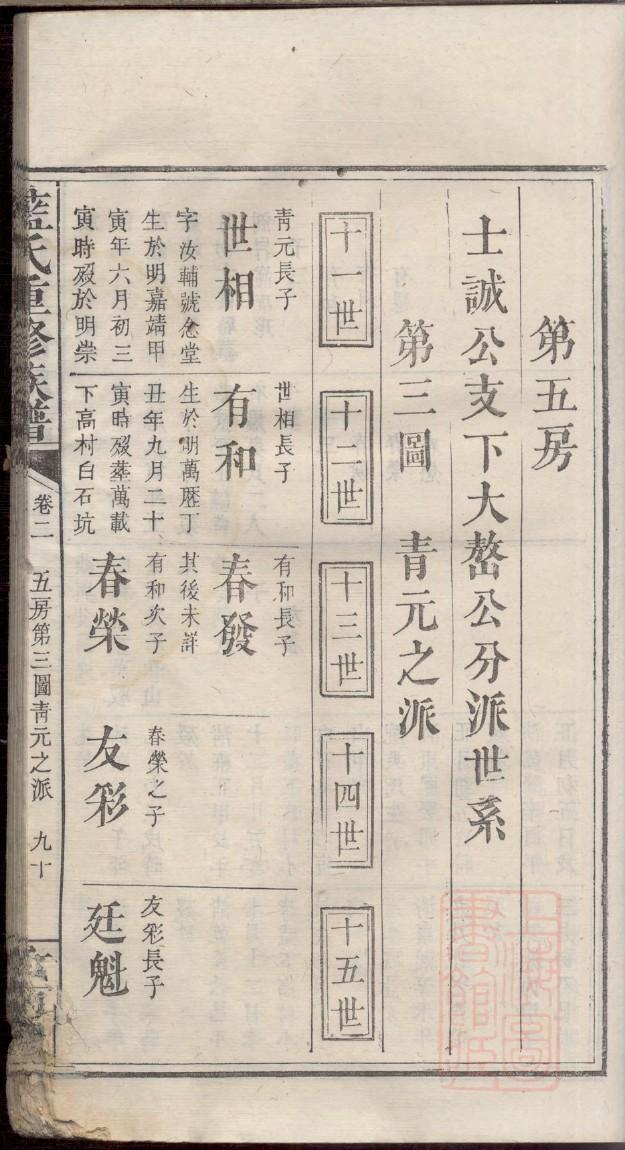 第五房
士誠公支下大嶅公分派世系
第三圖 青元之派
十一世
十二世
十三世
十四世
十五世
青元長子
世相
字汝輔號念堂
生於明嘉靖甲
寅年六月初三
寅時歿於明崇
世相長子
有和
生於明萬歷丁
丑年九月二十
寅時歿塟萬載
下高村白石坑
有和長子
春發
其後未詳
有和次子
春榮
春榮之子
友彩
友彩長子
廷魁
藍氏重修族譜
卷二
五房第三圖青元之派
九十